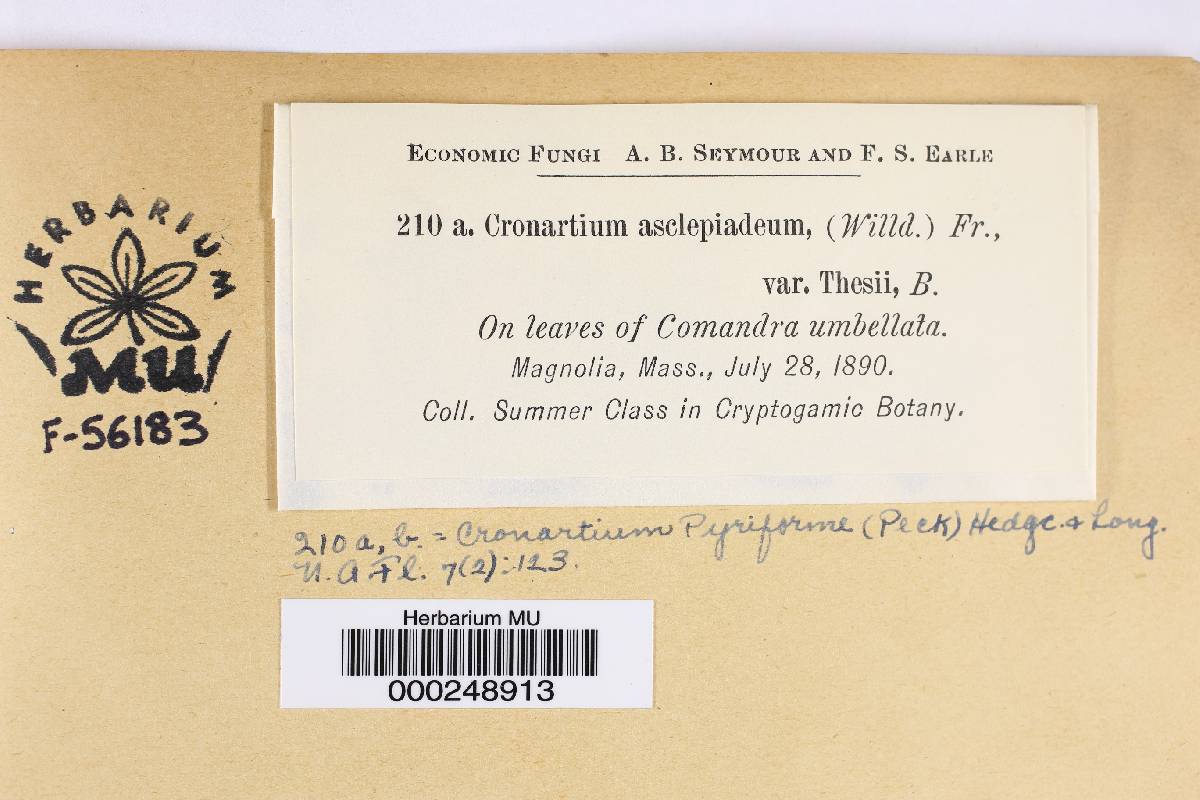 HERBARIUM
MU
F-56183
ECONOMIC FUNGI A. B. SEYMOUR AND F. S. EARLE
210 a. Cronartium asclepiadeum, (Willd.) Fr.,
var. Thesii, B.
On leaves of Comandra umbellata.
Magnolia, Mass., July 28, 1890.
Coll. Summer Class in Cryptogamic Botany.
210 a, b. = Cronartium Pyriforme (Peck) Hedgc. & Long.
N. A. Fl. 7(2):123.
Herbarium MU
000248913